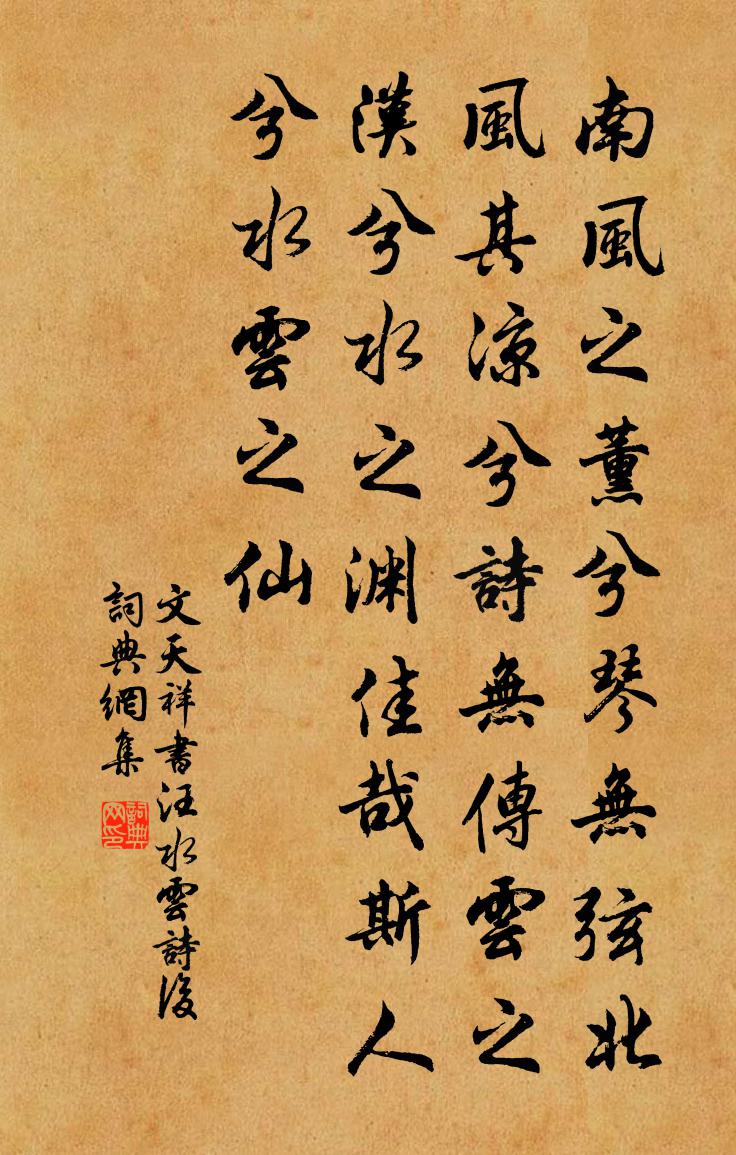 南風之薰兮琴無弦北
風其凉兮詩無傳雲之
漢兮水之渊佳哉斯人
兮水雲之仙
文天祥書汪水雲詩後
詞典網集
詞典网印